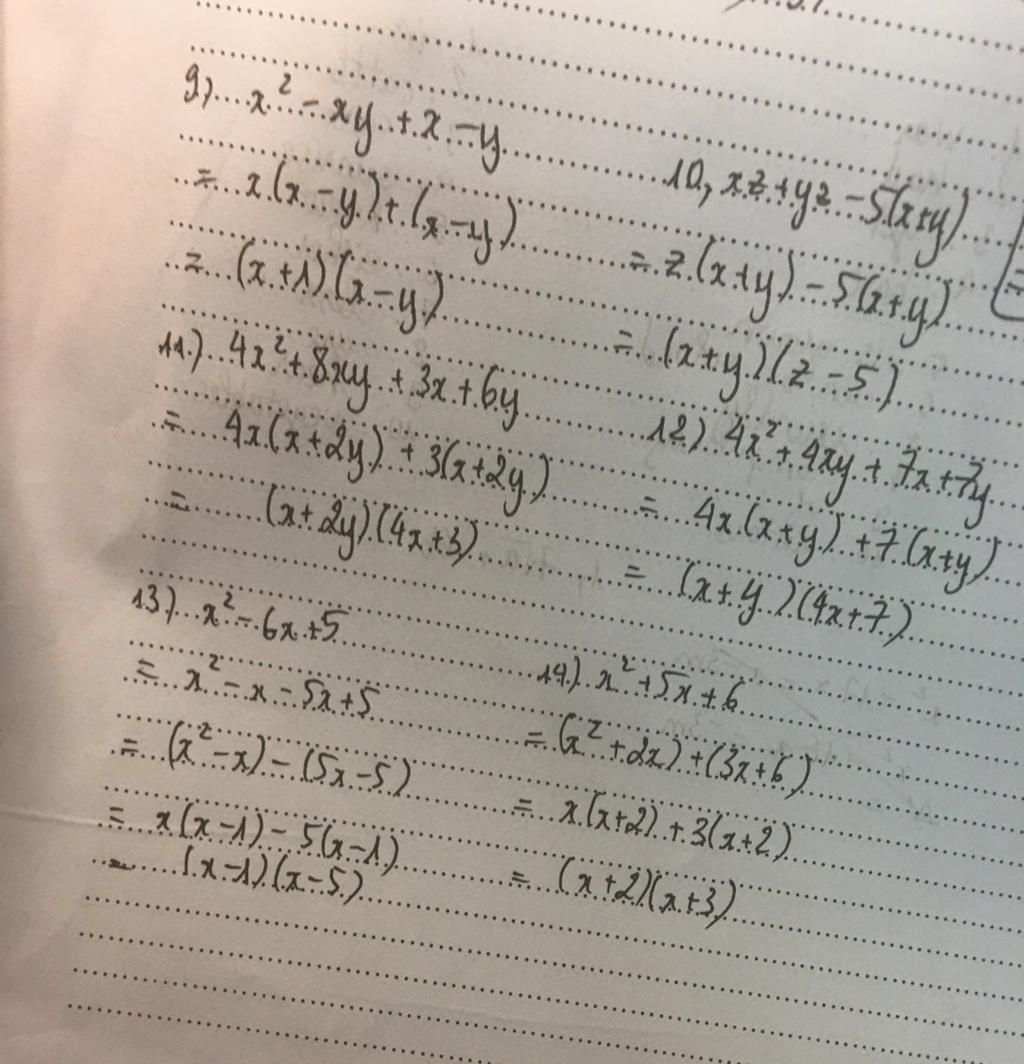 9) x² - xy + x - y
= x(x - y) + (x - y)
= (x + 1)(x - y)
10, xz + yz - 5(x+y)
= z(x+y) - 5(x+y)
= (x+y)(z - 5)
11) 4x² + 8xy + 3x + 6y
= 4x(x + 2y) + 3(x + 2y)
= (x + 2y)(4x + 3)
12) 4x² + 4xy + 7x + 7y
= 4x(x + y) + 7(x + y)
= (x + y)(4x + 7)
13) x² - 6x + 5
= x² - x - 5x + 5
= (x² - x) - (5x - 5)
= x(x - 1) - 5(x - 1)
= (x - 1)(x - 5)
14) x² + 5x + 6
= (x² + 2x) + (3x + 6)
= x(x + 2) + 3(x + 2)
= (x + 2)(x + 3)